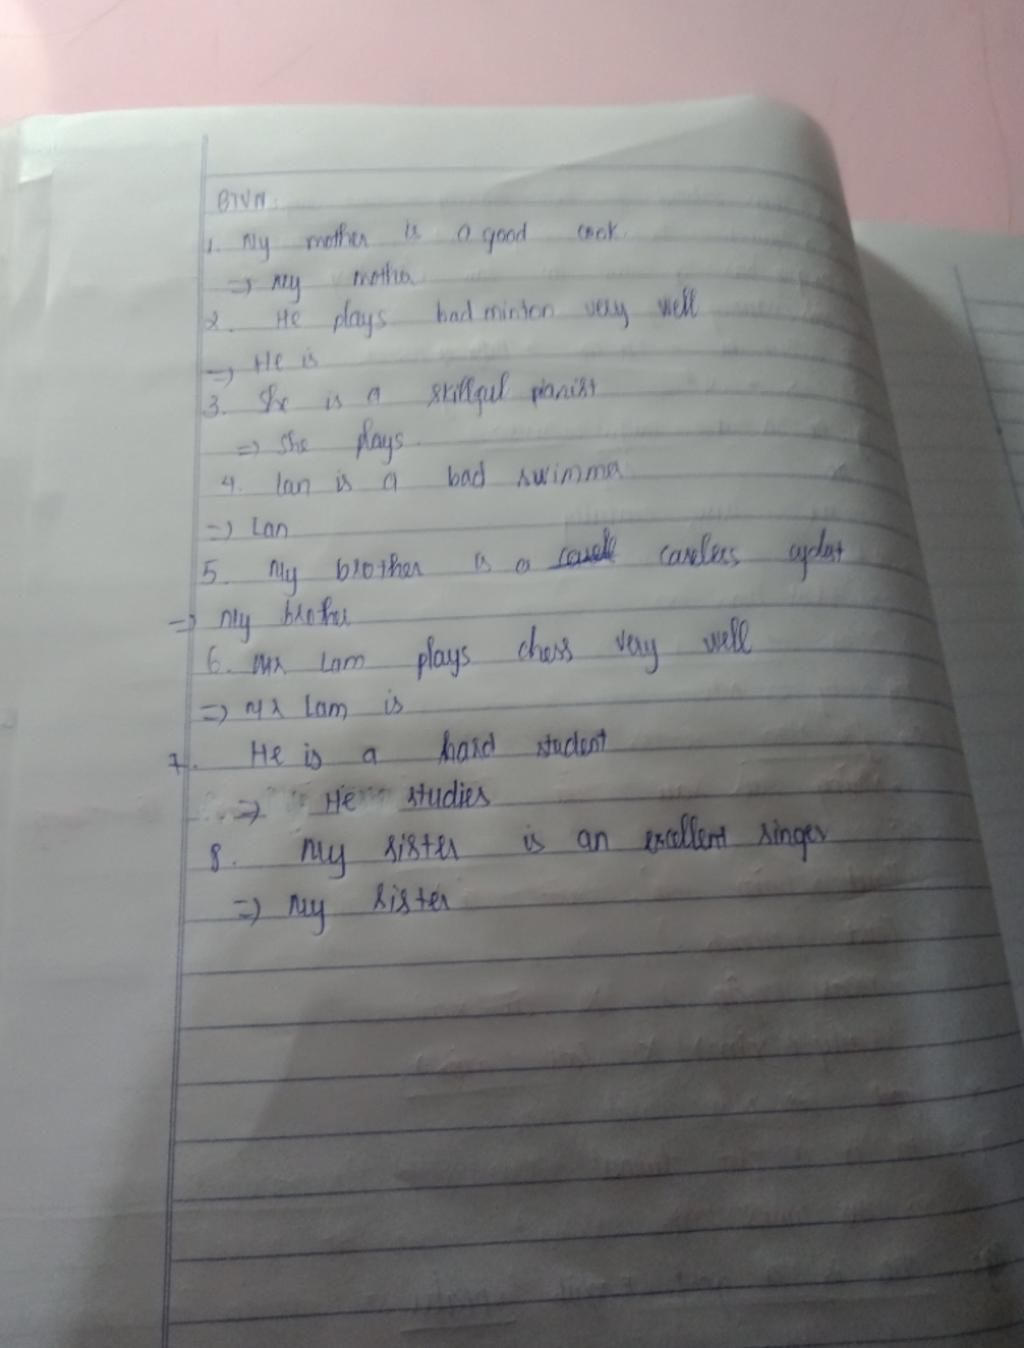 BTVN:
1. My mother is a good cook.
=> My mother
2. He plays badminton very well
=> He is
3. She is a skillful pianist
=> She plays
4. Lan is a bad swimmer
=> Lan
5. My brother is a careless cyclist
=> My brother
6. Mr Lam plays chess very well
=> Mr Lam is
7. He is a hard student
=> He studies
8. My sister is an excellent singer
=> My sister